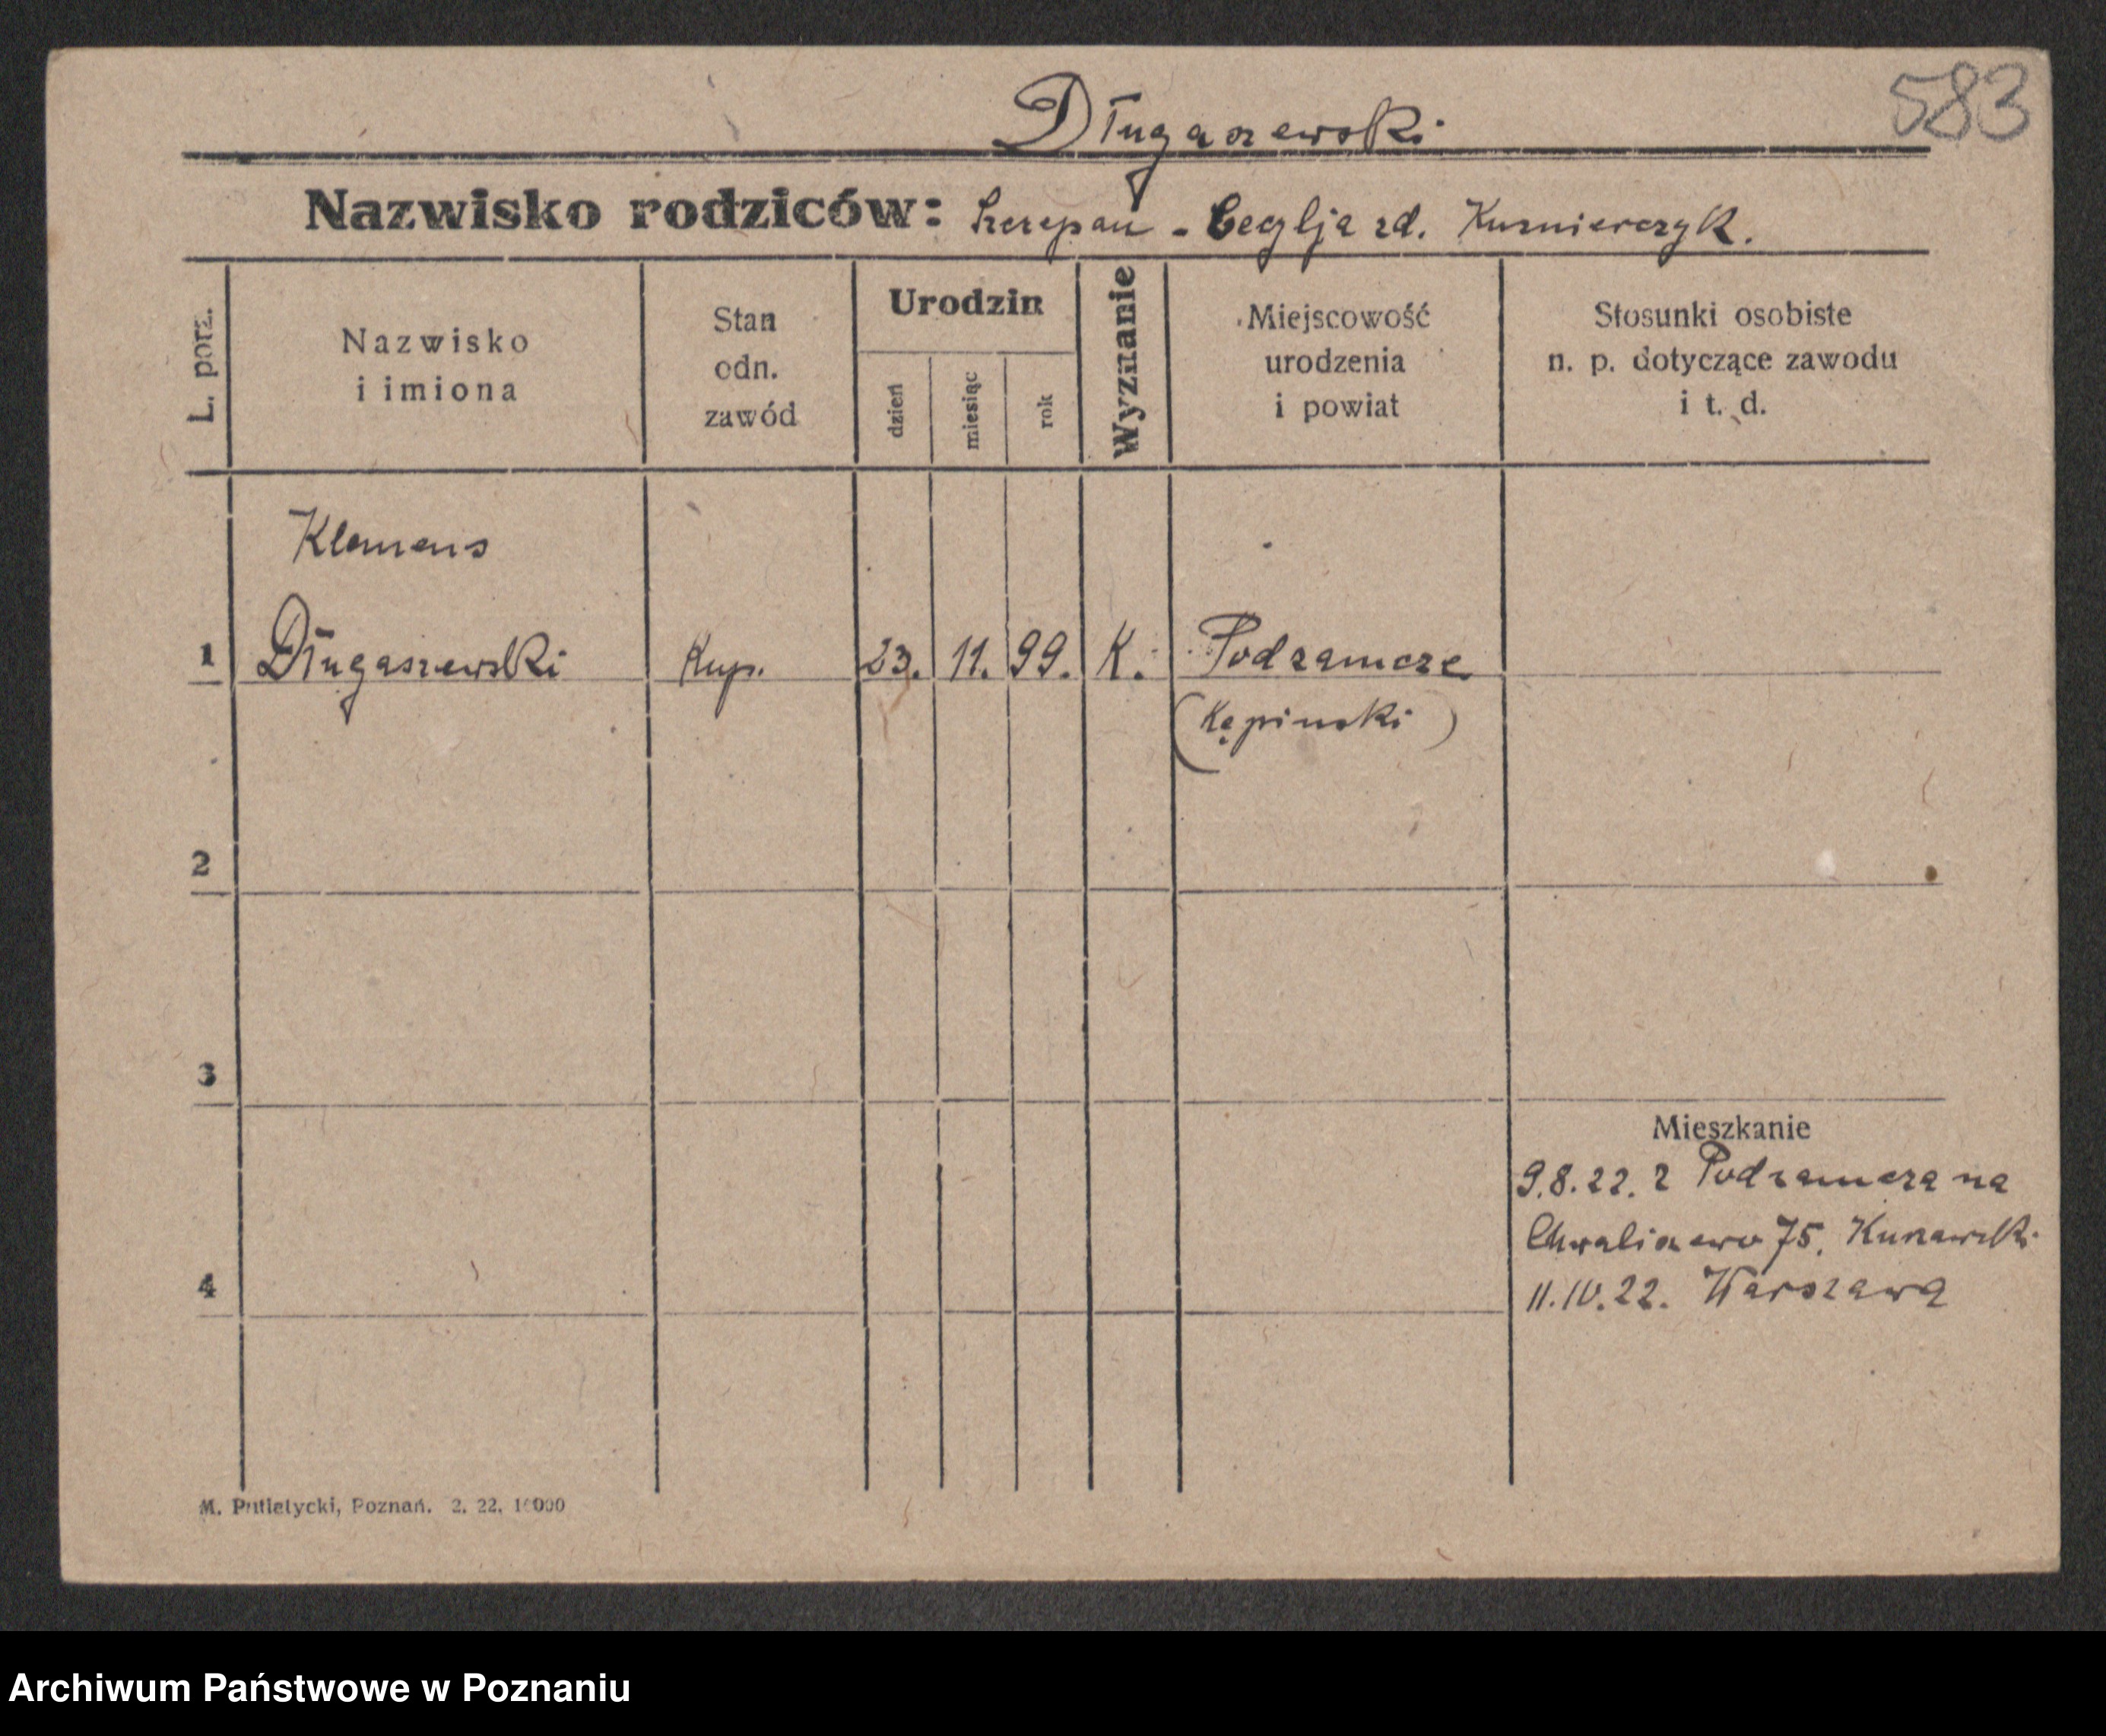 583
Długaszewski
Nazwisko rodziców: Szczepan - Cecylja zd. Kuśnierczyk.
L. porz.
Nazwisko
i imiona
Stan
odn.
zawód
Urodzin
dzień
miesiąc
rok
Wyznanie
Miejscowość
urodzenia
i powiat
Stosunki osobiste
n. p. dotyczące zawodu
i t. d.
Klemens
1 Długaszewski Kup. 23. 11. 99. K. Podzamcze
(Kępiński)
2
3
Mieszkanie
9.8.22. z Podzamcza na
Chwaliszewo 75.
4
11.IV.22. Warszawa
M. Putiatycki, Poznań. 2. 22. 10000
Archiwum Państwowe w Poznaniu